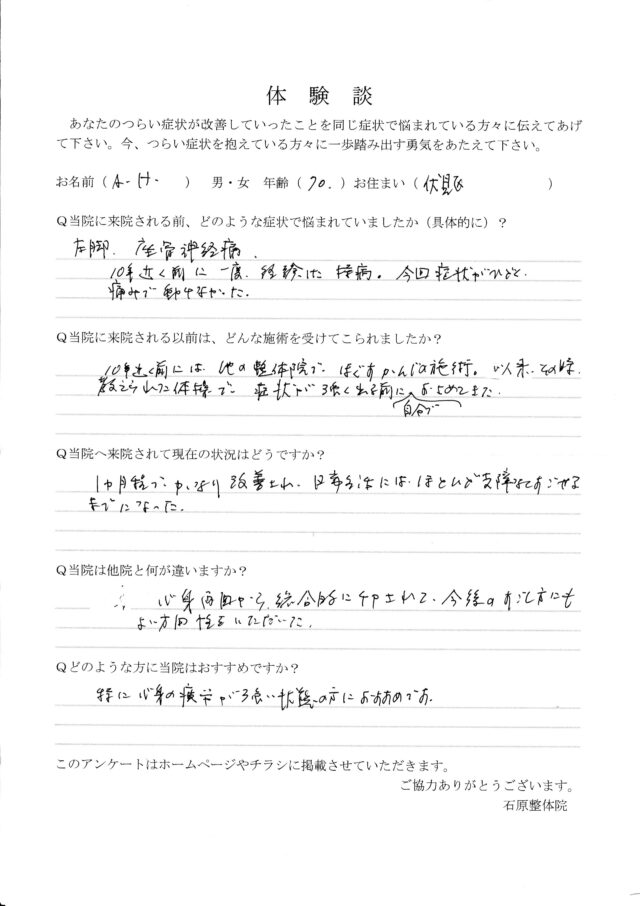 体験談
あなたのつらい症状が改善していったことを同じ症状で悩まれている方々に伝えてあげ
て下さい。今、つらい症状を抱えている方々に一歩踏み出す勇気をあたえて下さい。
お名前（A.H. ）男・女 年齢（70.）お住まい（伏見区 ）
Q当院に来院される前、どのような症状で悩まれていましたか（具体的に）？
左脚、座骨神経痛、
10年近く前に一度、経験した持病。今回症状がひどく、
痛みで動けなかった。
Q当院に来院される以前は、どんな施術を受けてこられましたか？
10年近く前には、他の整体院でほぐすかんじの施術。以来、その時、
教えられた体操で、症状が強く出る前に、おさめてきた。
自分で
Q当院へ来院されて現在の状況はどうですか？
1ヵ月程でかなり改善され、日常生活にはほとんど支障なくすごせる
までになった。
Q当院は他院と何が違いますか？
心身両面から、総合的に みて、今後のすごし方にも
よい方向性をいただいた。
Qどのような方に当院はおすすめですか？
特に心身の疲労が強い状態の方におすすめです。
このアンケートはホームページやチラシに掲載させていただきます。
ご協力ありがとうございます。
石原整体院